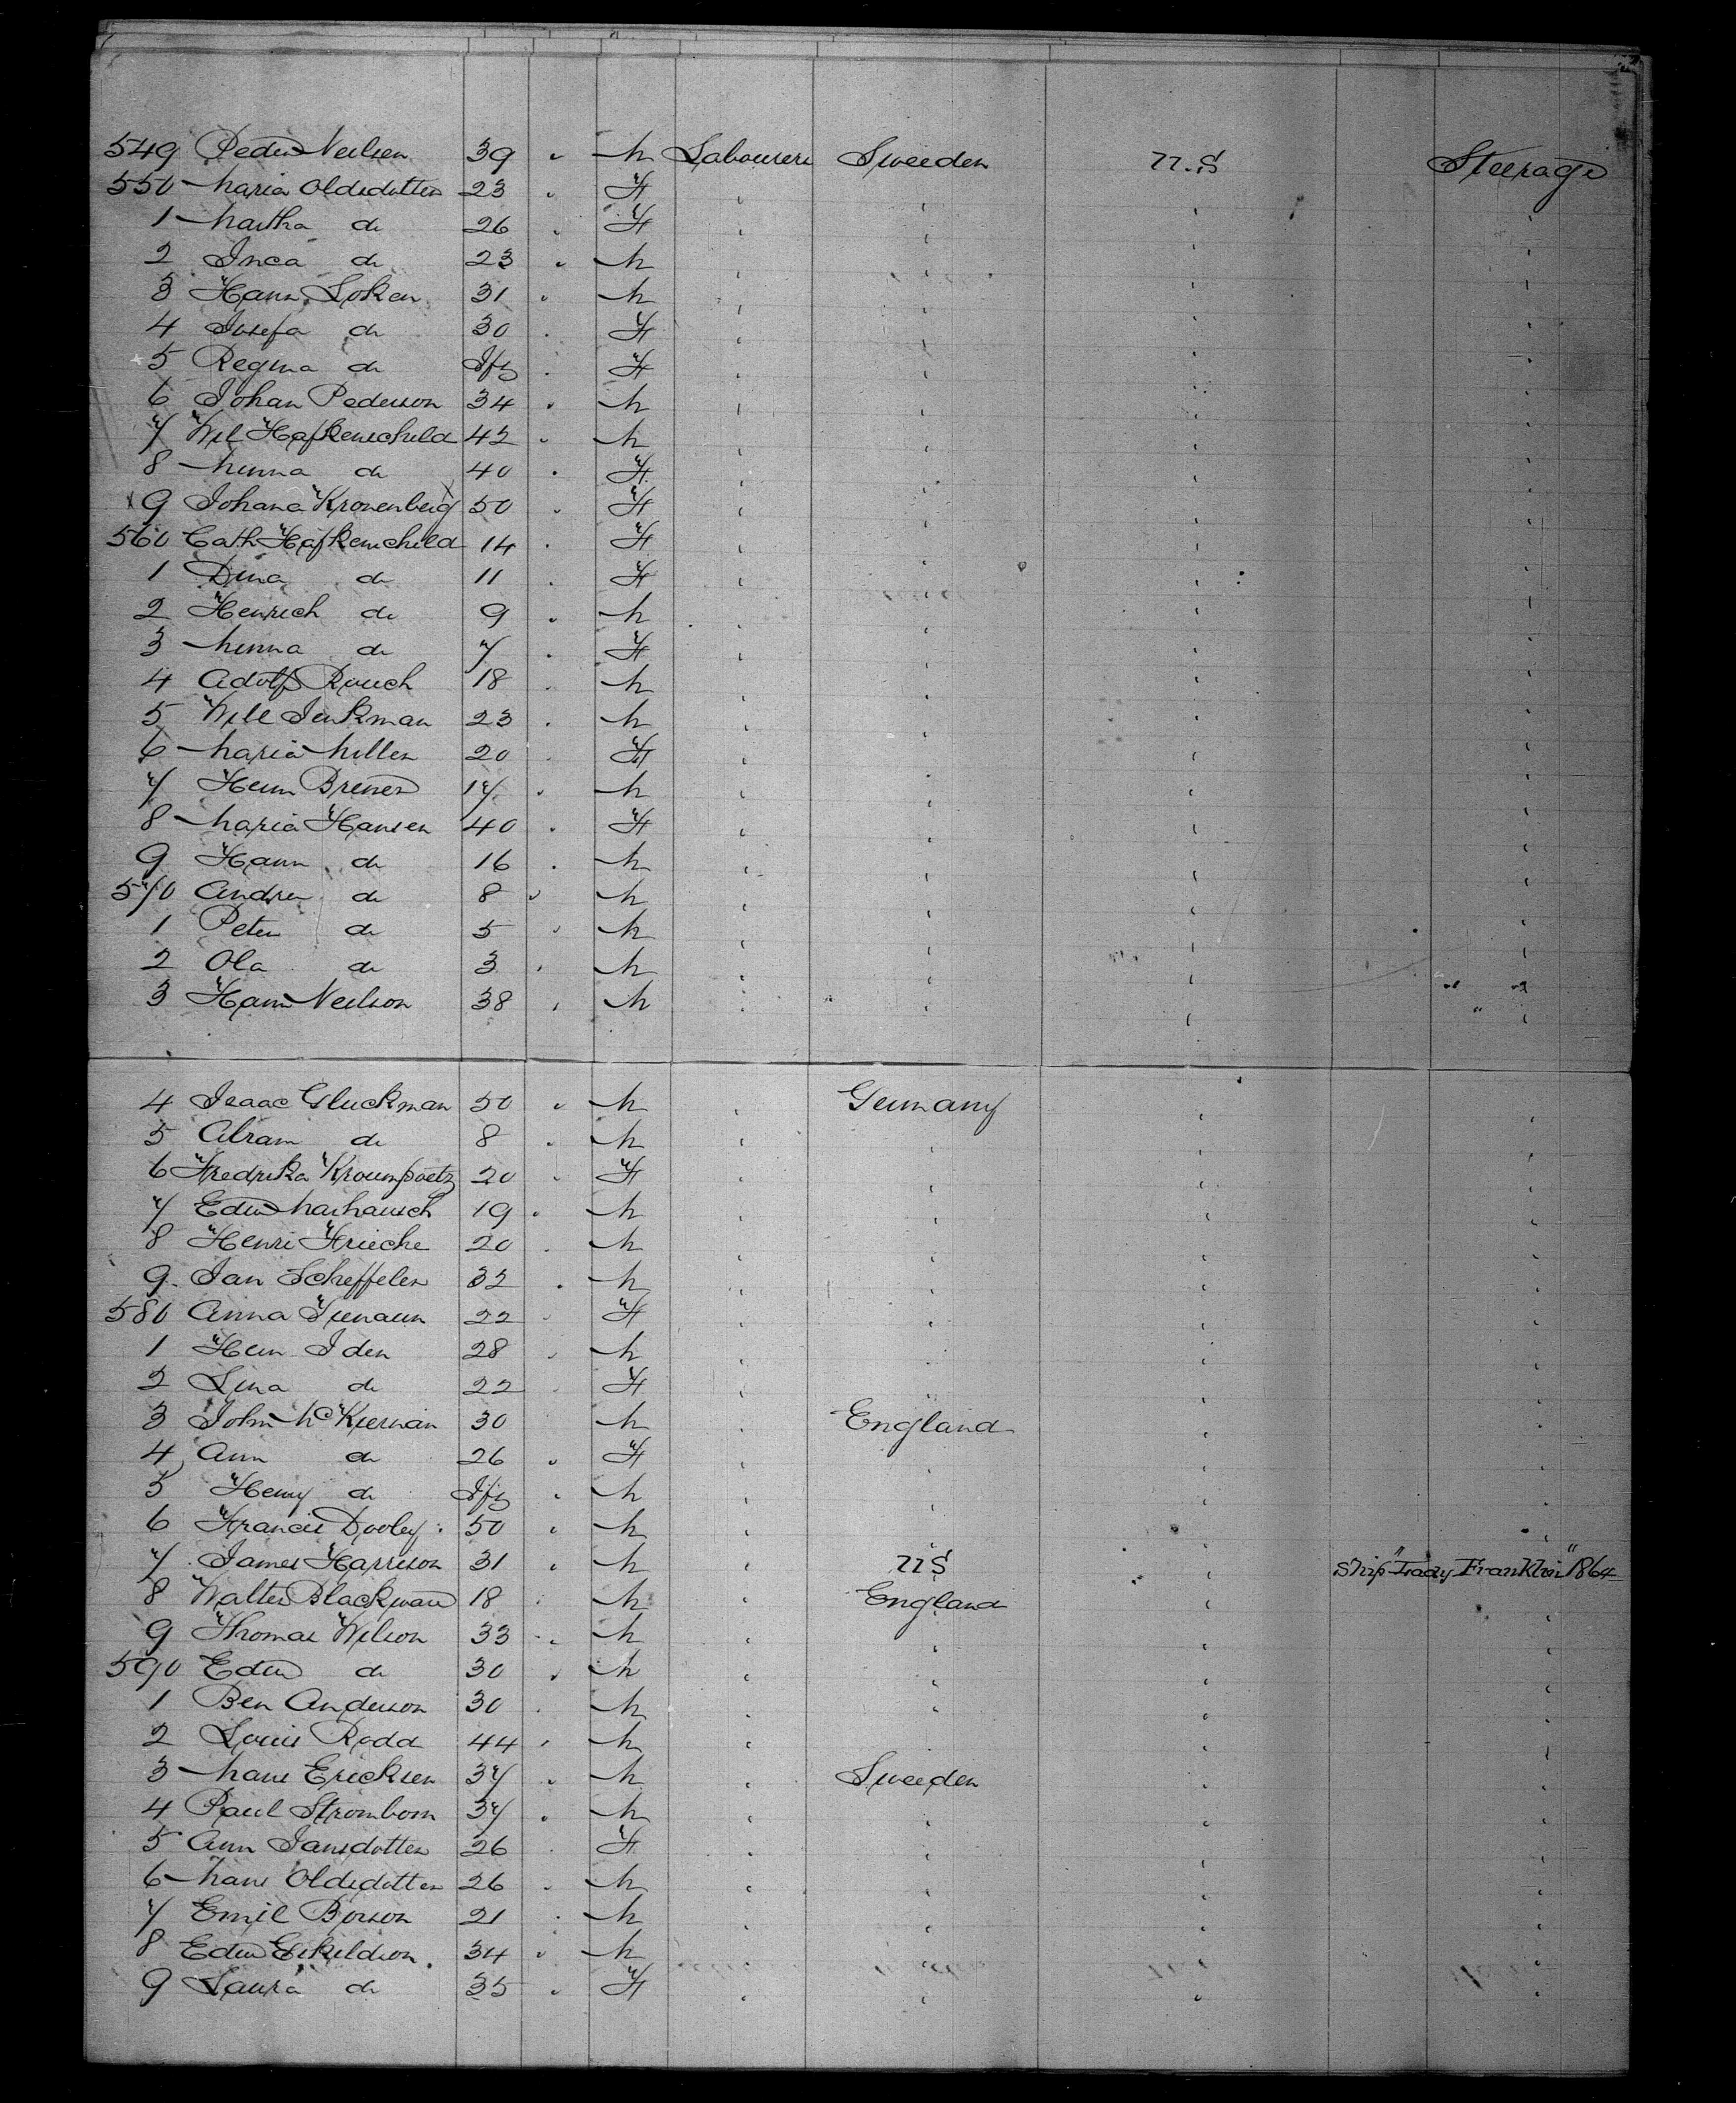 549 Peder Neilsen 39 " M Labourers Sweeden U.S Steerage
550 Maria Oldsdotter 23 " F " " " "
1 Martha do 26 " F " " " "
2 Inca do 23 " M " " " "
3 Hans Loken 31 " M " " " "
4 Josefa do 30 " F " " " "
5 Regina do Ify " F " " " "
6 Johan Pederson 34 " M " " " "
7 Wil Hafkenscheld 42 " M " " " "
8 Minna do 40 " F " " " "
9 Johana Kronenberg 50 " F " " " "
560 Cath Hafkenscheld 14 " F " " " "
1 Dina do 11 " F " " " "
2 Henrich do 9 " M " " " "
3 Minna do 7 " F " " " "
4 Adolf Rouch 18 " M " " " "
5 Will Jenkman 23 " M " " " "
6 Maria Miller 20 " F " " " "
7 Hein Bremer 17 " M " " " "
8 Maria Hansen 40 " F " " " "
9 Hans do 16 " M " " " "
570 Andrew do 8 " M " " " "
1 Peter do 5 " M " " " "
2 Ola do 3 " M " " " "
3 Hans Neilson 38 " M " " " "
4 Isaac Gluckman 50 " M " Germany " "
5 Abram do 8 " M " " " "
6 Fredrika 20 " F " " " "
7 Edw 19 " M " " " "
8 Henri Friche 20 " M " " " "
9 Jan Scheffeler 32 " M " " " "
580 Anna 22 " F " " " "
1 Hein Iden 28 " M " " " "
2 Lina do 22 " F " " " "
3 John McKiernan 30 M " England " "
4 Ann do 26 " F " " " "
5 Henry do Ify " M " " " "
6 Francis Dooley 50 " M " " " "
7 James Harrison 31 " M " U S " Ship "Lady Franklin" 1864
8 Walter Blackman 18 " M " England " "
9 Thomas Wilson 33 " M " " " "
590 Edw do 30 " M " " " "
1 Ben Anderson 30 " M " " " "
2 Louis Rodd 44 " M " " " "
3 Mans Ericksen 37 " M " Sweeden " "
4 Paul Strombom 37 " M " " " "
5 Ann Jansdotter 26 " F " " " "
6 Mans Oldsdotter 26 " M " " " "
7 Emil Borson 21 " M " " " "
8 Edw Eskeldson 34 " M " " " "
9 Laura do 35 " F " " " "